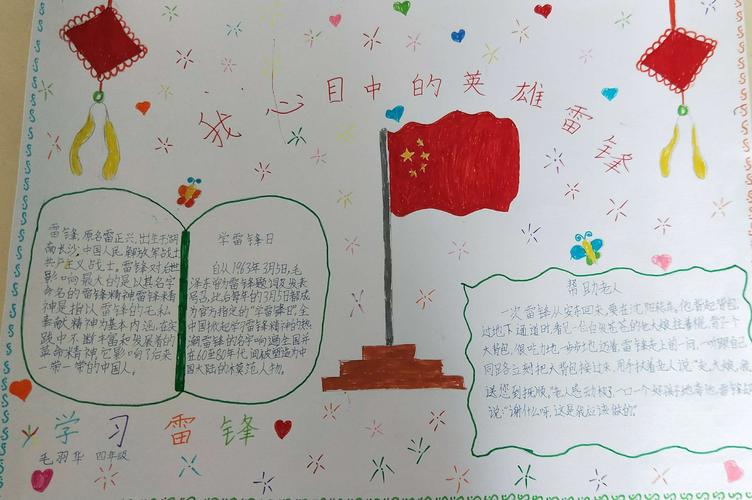 我心目中的英雄雷锋
雷锋,原名雷正兴,出生于湖
南长沙,中国人民解放军战士
共产主义战士,雷锋对后世
影响最大的是以其名字
命名的雷锋精神雷锋精
神是指以雷锋的无私
奉献精神为基本内涵,在实
践中不断丰富和发展着的
革命精神它影响了后来
一带一带的中国人。
学雷锋日
自从1963年3月5日,毛
泽东的雷锋题词发表
后,比后每年的3月5日都成
为官方指定的"学雷锋日",全
中国掀起学习雷锋精神的热
潮雷锋的名字响遍全国并
在60至80年代 间被塑造为中
国大陆的模范人物。
帮助老人
一次雷锋从安东回来,要在沈阳转车,他背起背包
过地下通道时看见一位白发苍苍的老大娘拄着棍,背了个
大背包,很吃力地一步步地迈着,雷锋走上前一问,
同,马上立刻把大背包接过来,用手扶着老人说"走,大娘,我
送您到抚顺,"老人感动极了,一口一个好孩子地夸他,雷锋
说:"谢什么呀,这是我应该做的"
学习雷锋
毛羽华 四年级